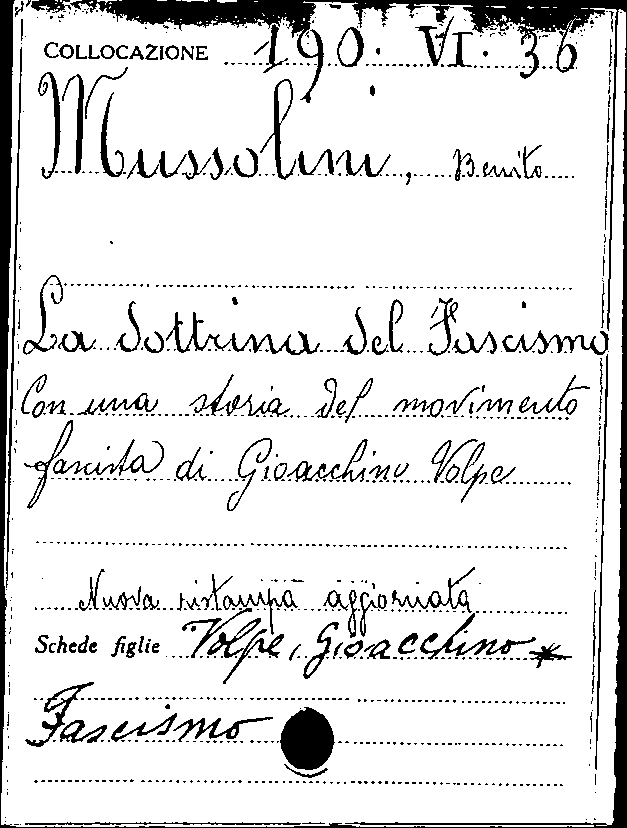 COLLOCAZIONE 190. VI. 36
Mussolini, Benito
La dottrina del Fascismo
Con una storia del movimento
fascista di Gioacchino Volpe
Nuova ristampa aggiornata
Schede figlie Volpe, Gioacchino *
Fascismo